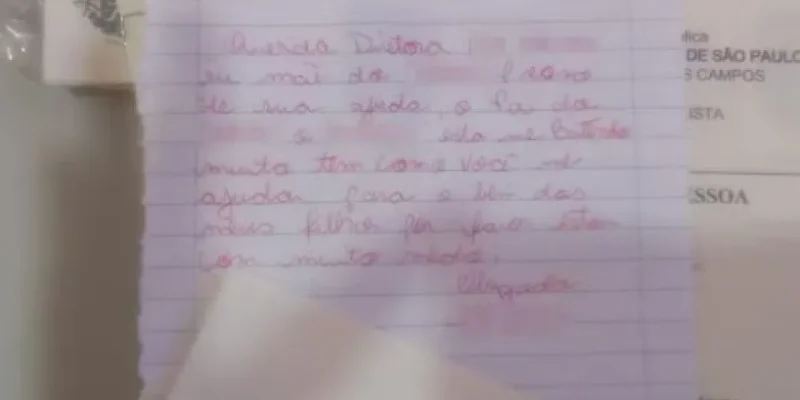 Querida Diretora
eu mai do preciso
de sua ajuda, o Pa da
e esta me Batendo
muito tem como você me
ajudar para o bem dos
meus filhos por favor estou
com muito medo.
Obrigada
fica
DE SÃO PAULO
S CAMPOS
ISTA
SSOA